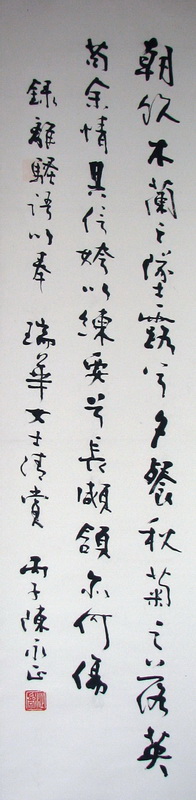 朝飲木蘭之隊露兮夕餐秋菊之落英
苟余情其信姱以練要兮長顑頷亦何傷
錄離騷語以奉 瑞華女士清賞 丙子陳永正